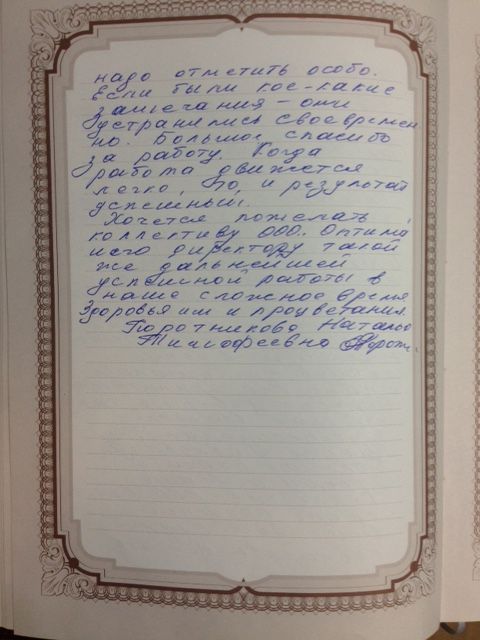 надо отметить особо.
Если были кое-какие
замечания – они
устранялись своевремен
но. Большое спасибо
за работу. Когда
работа движется
легко, то, и результат
успешный.
Хочется пожелать
коллективу ООО. Оптима
и его директору такой
же дальнейшей
успешной работы в
наше сложное время
Здоровья им и процветания.
Коротникова Наталья
Тимофеевна